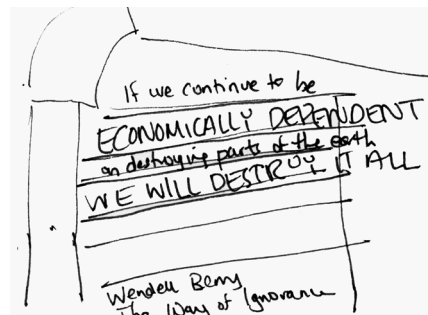 If we continue to be
ECONOMICALLY DEPENDENT
on destroying parts of the earth
WE WILL DESTROY IT ALL
Wendell Berry
The Way of Ignorance